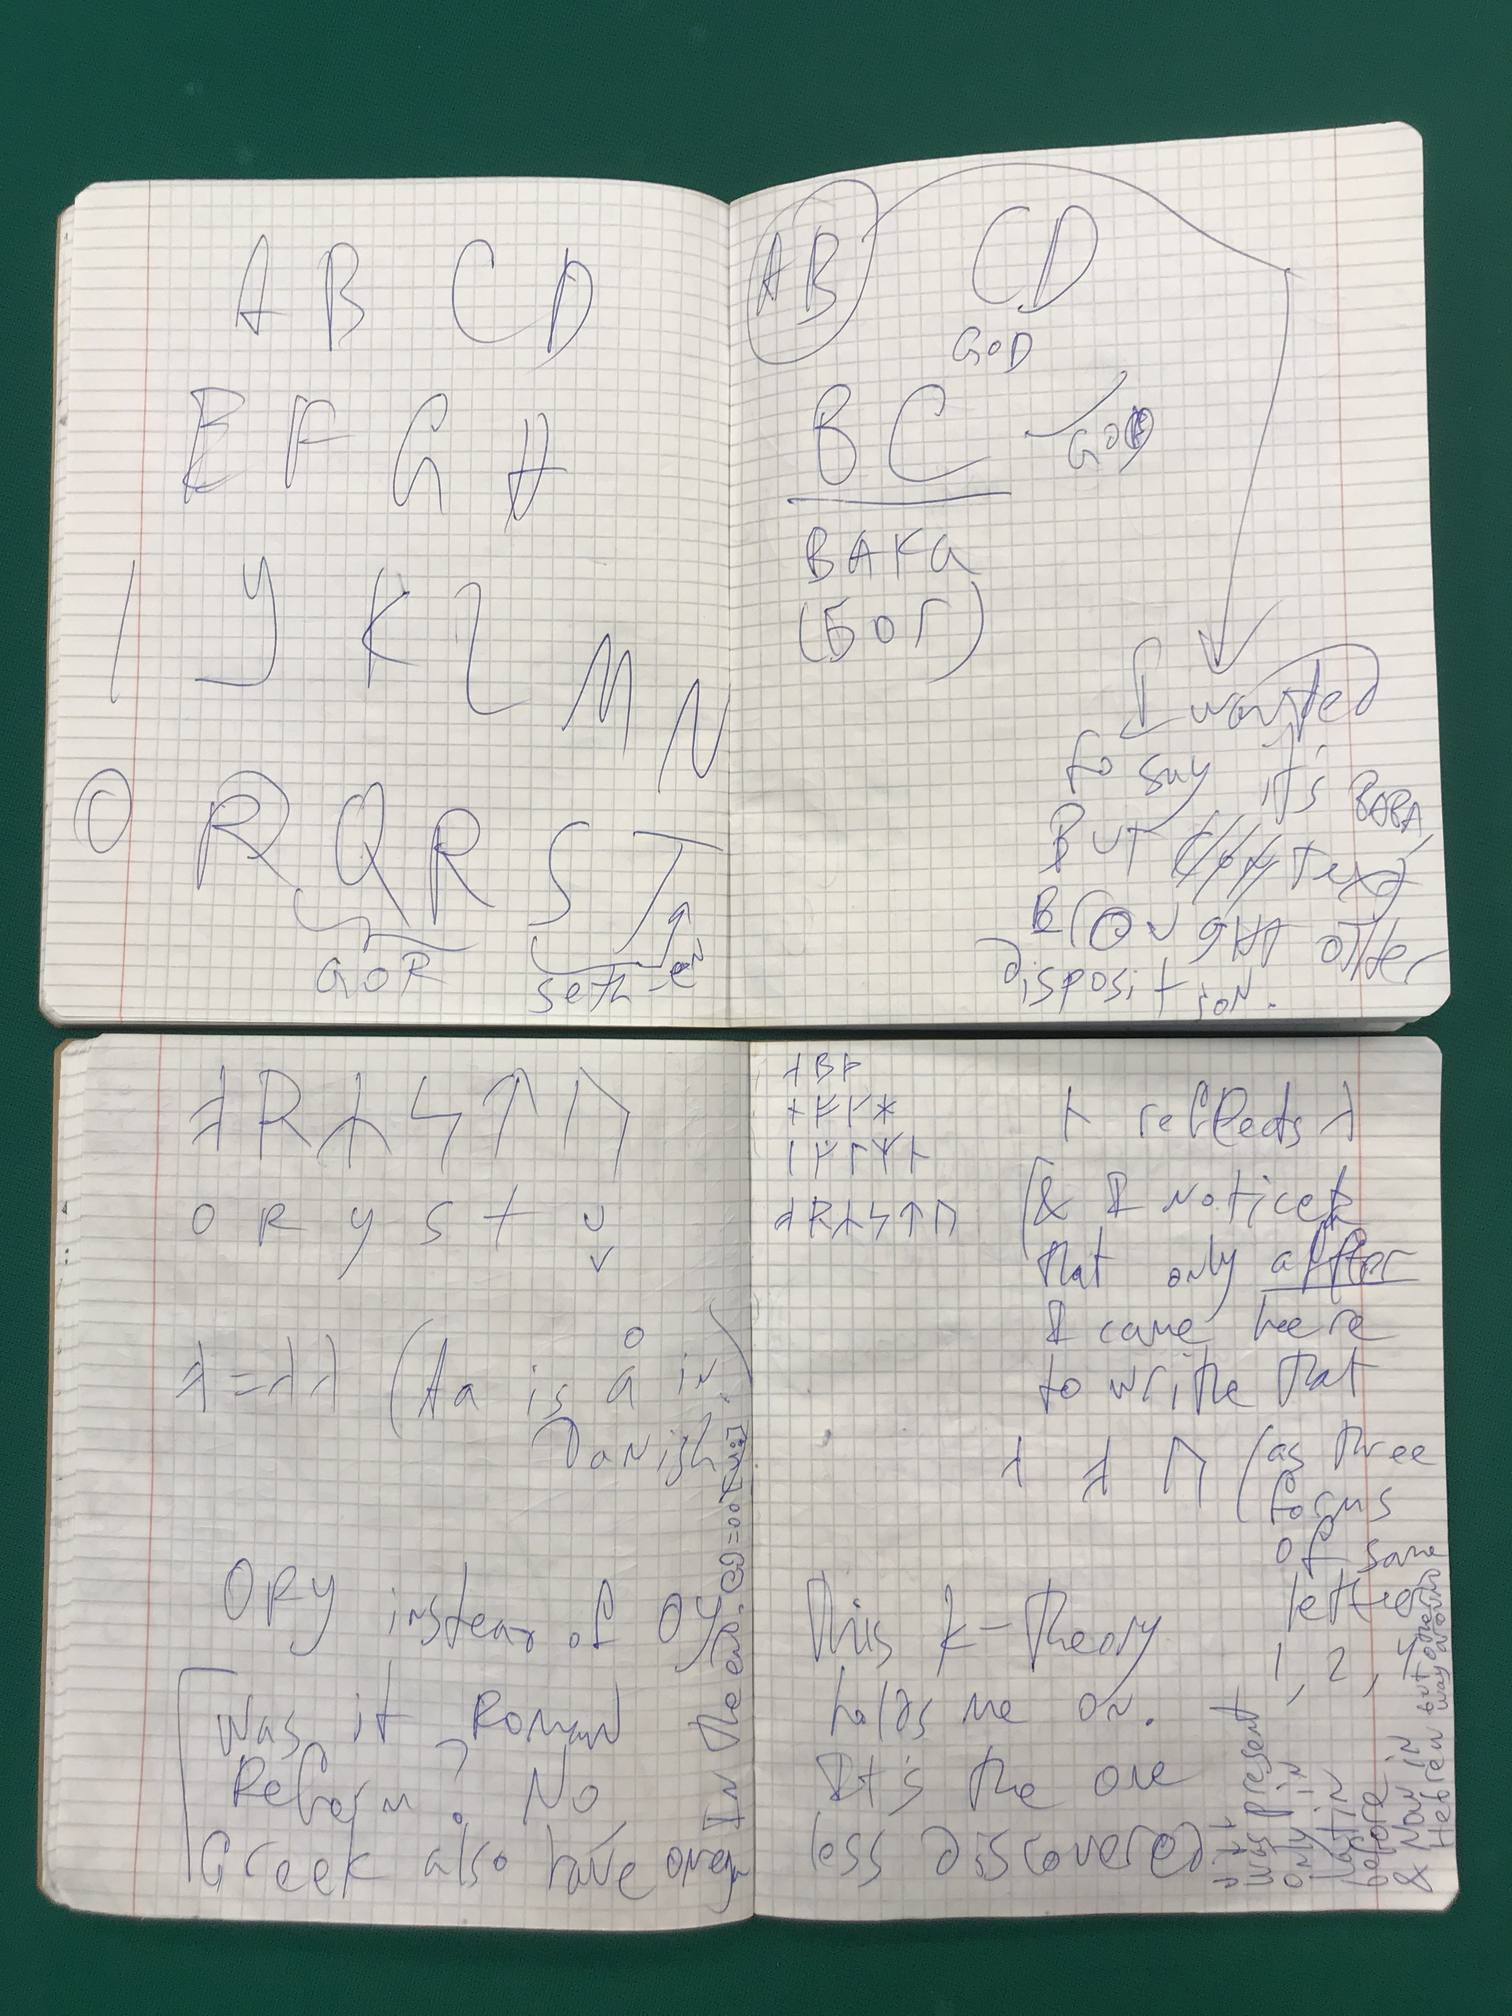 A B C D
E F G H
I Y K L M N
O R Q R S T
GOR
seth-en
AB CD
GOD
BC - GOD
BAKA
(БОГ)
I wanted
to say it's BABA,
BUT context
BROUGHT other
disposition.
ᚬ R ᛅ ᛋ ↑ ᚢ
o R y s t u
v
(Aa is å in
Danish)
ORY instead of OY
Was it Roman
Reform? No,
Greek also have omega
In the end.
reflects
(& I noticed
that only after
I came here
to write that
(as three
forms
of same
letter
1, 2, 4
This k-theory
holds me on.
It's the one
less discovered
was present
only in
last in
before
& Now in
Hebrew but other
way around